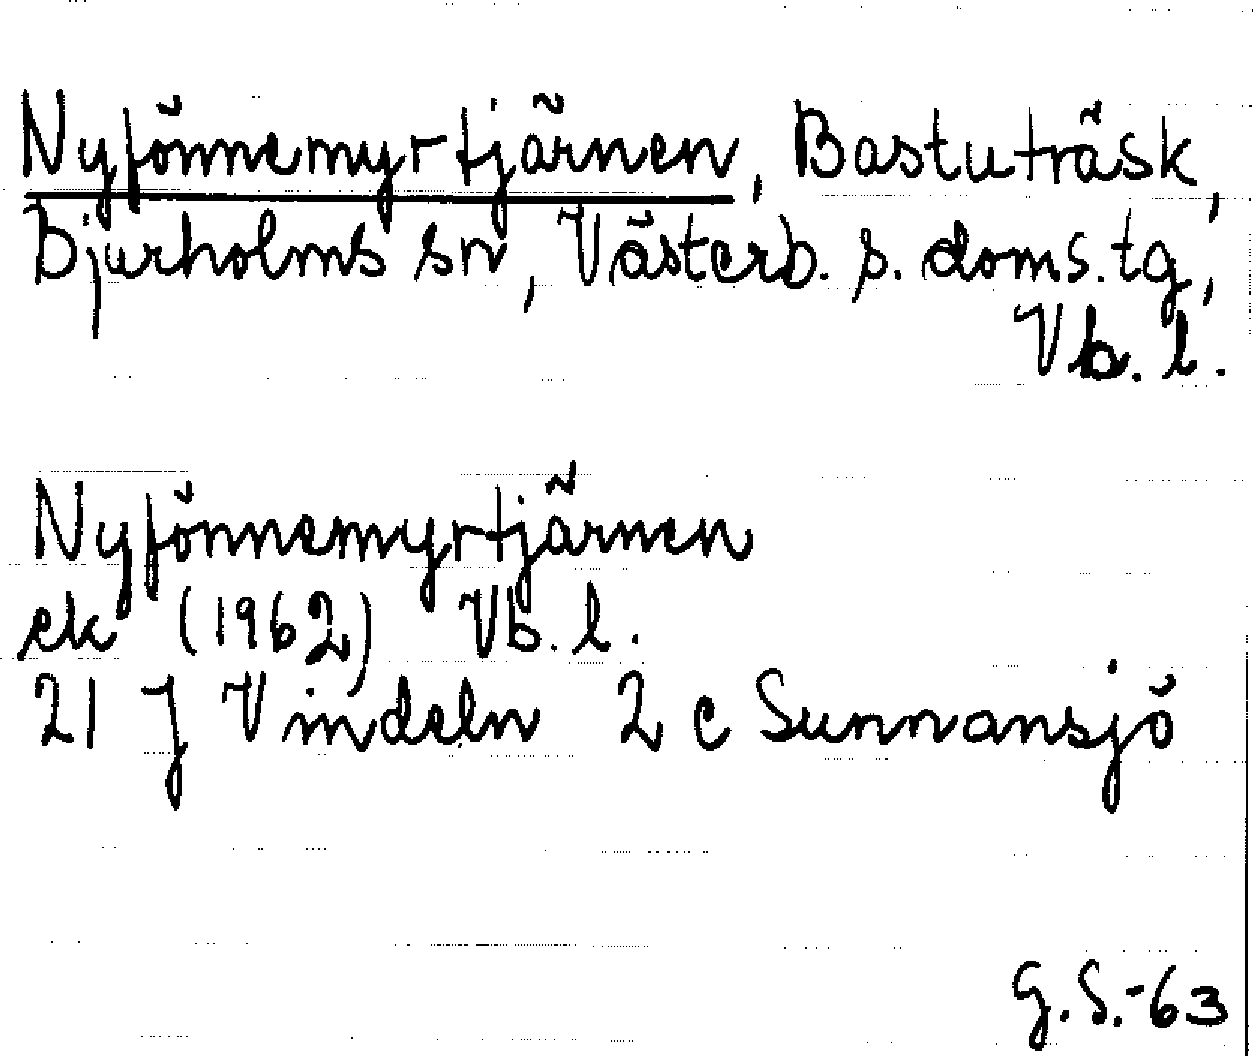 Nyfönnemyrtjärnen, Bastuträsk,
Bjurholms sn, Västerb. s. doms. tg,
Vb. l.
Nyfönnemyrtjärnen
ek (1962) Vb. l.
21 J Vindeln 2 c Sunnansjö
G.S.-63